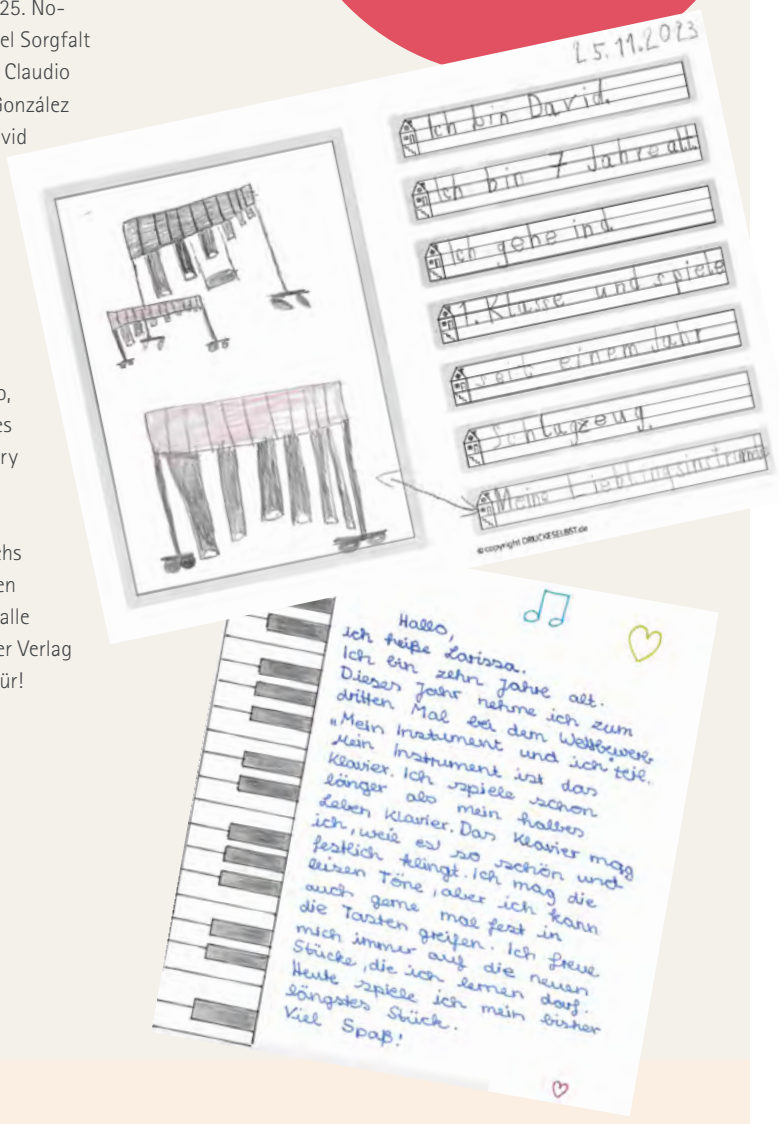 25. No-
el Sorgfalt
Claudio
González
vid
o,
es
ry
hs
en
alle
er Verlag
ür!
25.11.2023
Ich bin David.
Ich bin 7 Jahre alt.
Ich gehe in d
1. Klasse und spiele
seit einem Jahr
Schlagzeug.
Meine Lieblingsinstrum
© copyright DRUCKESELBST.de
Hallo,
ich heiße Larissa.
Ich bin zehn Jahre alt.
Dieses Jahr nehme ich zum
dritten Mal bei dem Wettbewerb
„Mein Instrument und ich" teil.
Mein Instrument ist das
Klavier. Ich spiele schon
länger als mein halbes
Leben Klavier. Das Klavier mag
ich, weil es so schön und
festlich klingt. Ich mag die
leisen Töne, aber ich kann
auch gerne mal fest in
die Tasten greifen. Ich freue
mich immer auf die neuen
Stücke, die ich lernen darf.
Heute spiele ich mein bisher
längstes Stück.
Viel Spaß!